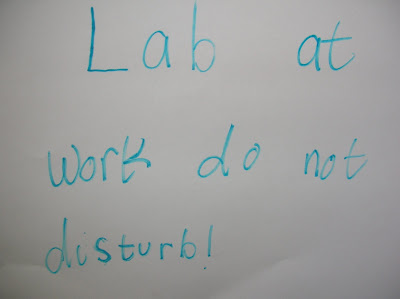 Lab at
work do not
disturb!